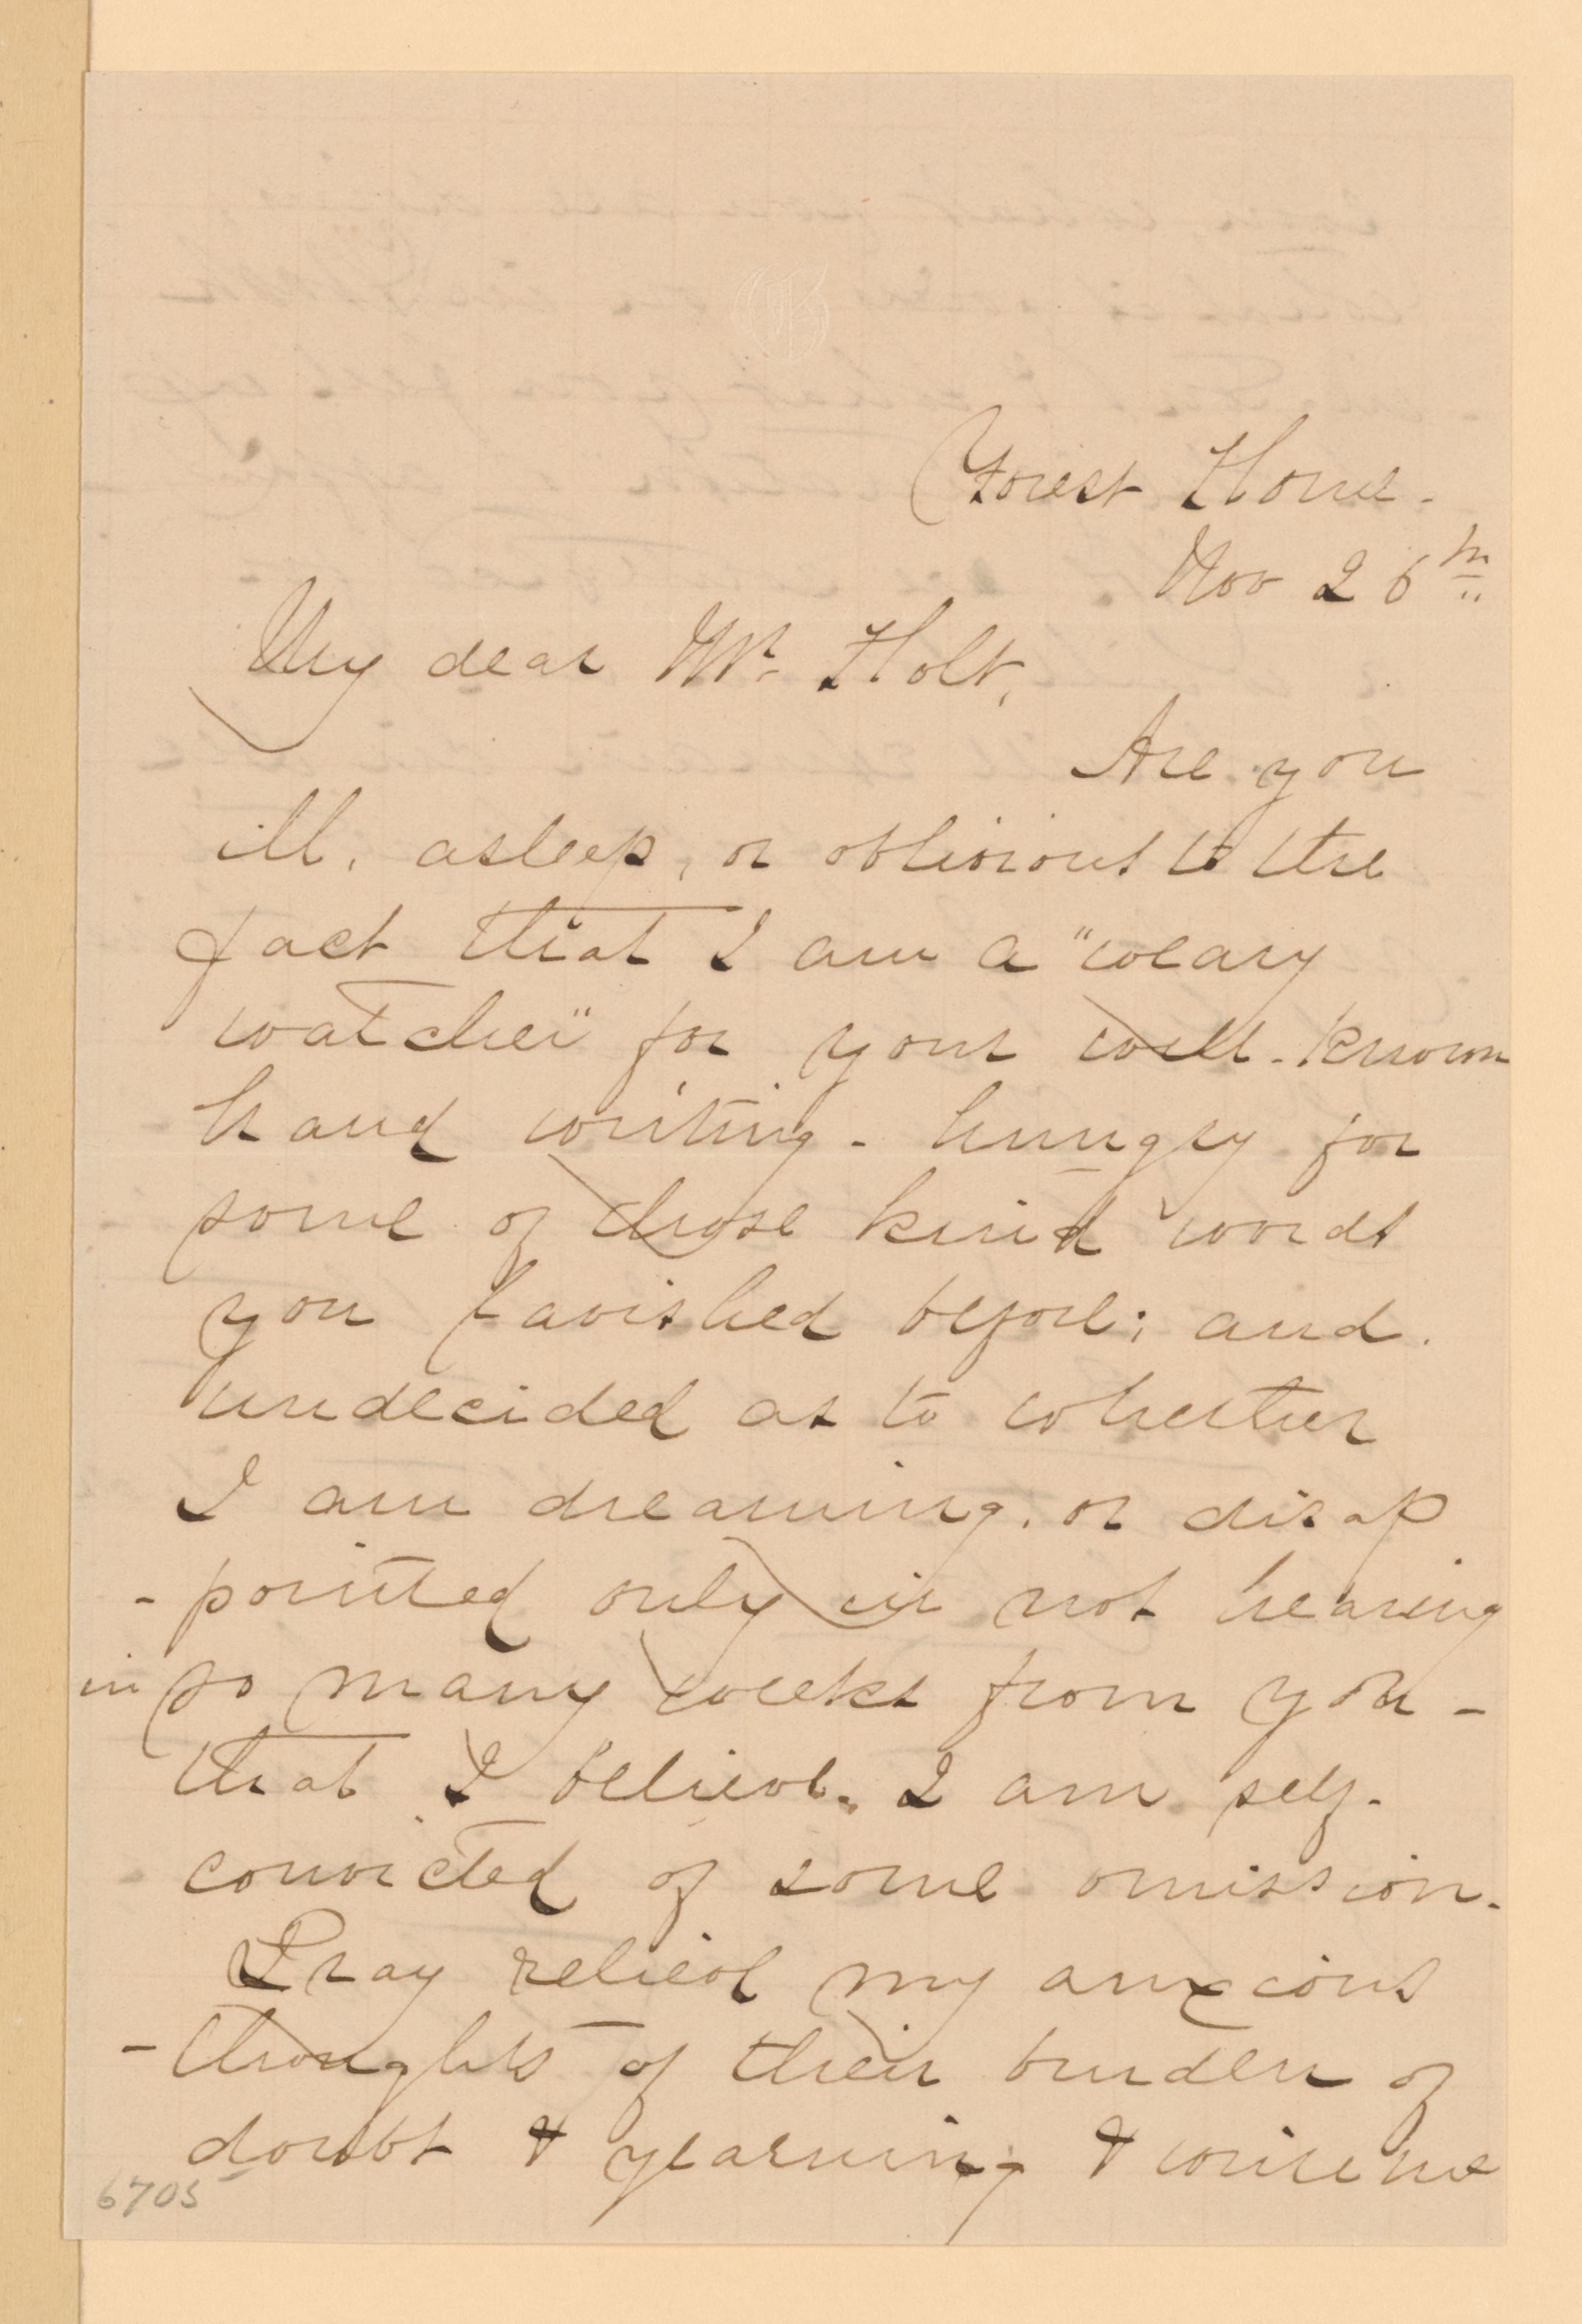 Forest Home.
Nov 26th
My dear Mr. Holt,
Are you
ill, asleep, or oblivious to the
fact that I am a "weary
watcher" for your well-known
hand writing - hungry for
some of those kind words
you lavished before; and
undecided as to whether
I am dreaming, or disap
-pointed only in not hearing
in so many weeks from you -
that I believe. I am self-
convicted of some omission.
Pray relieve my anxious
-thoughts of their burden of
doubt & yearning & write me
6705